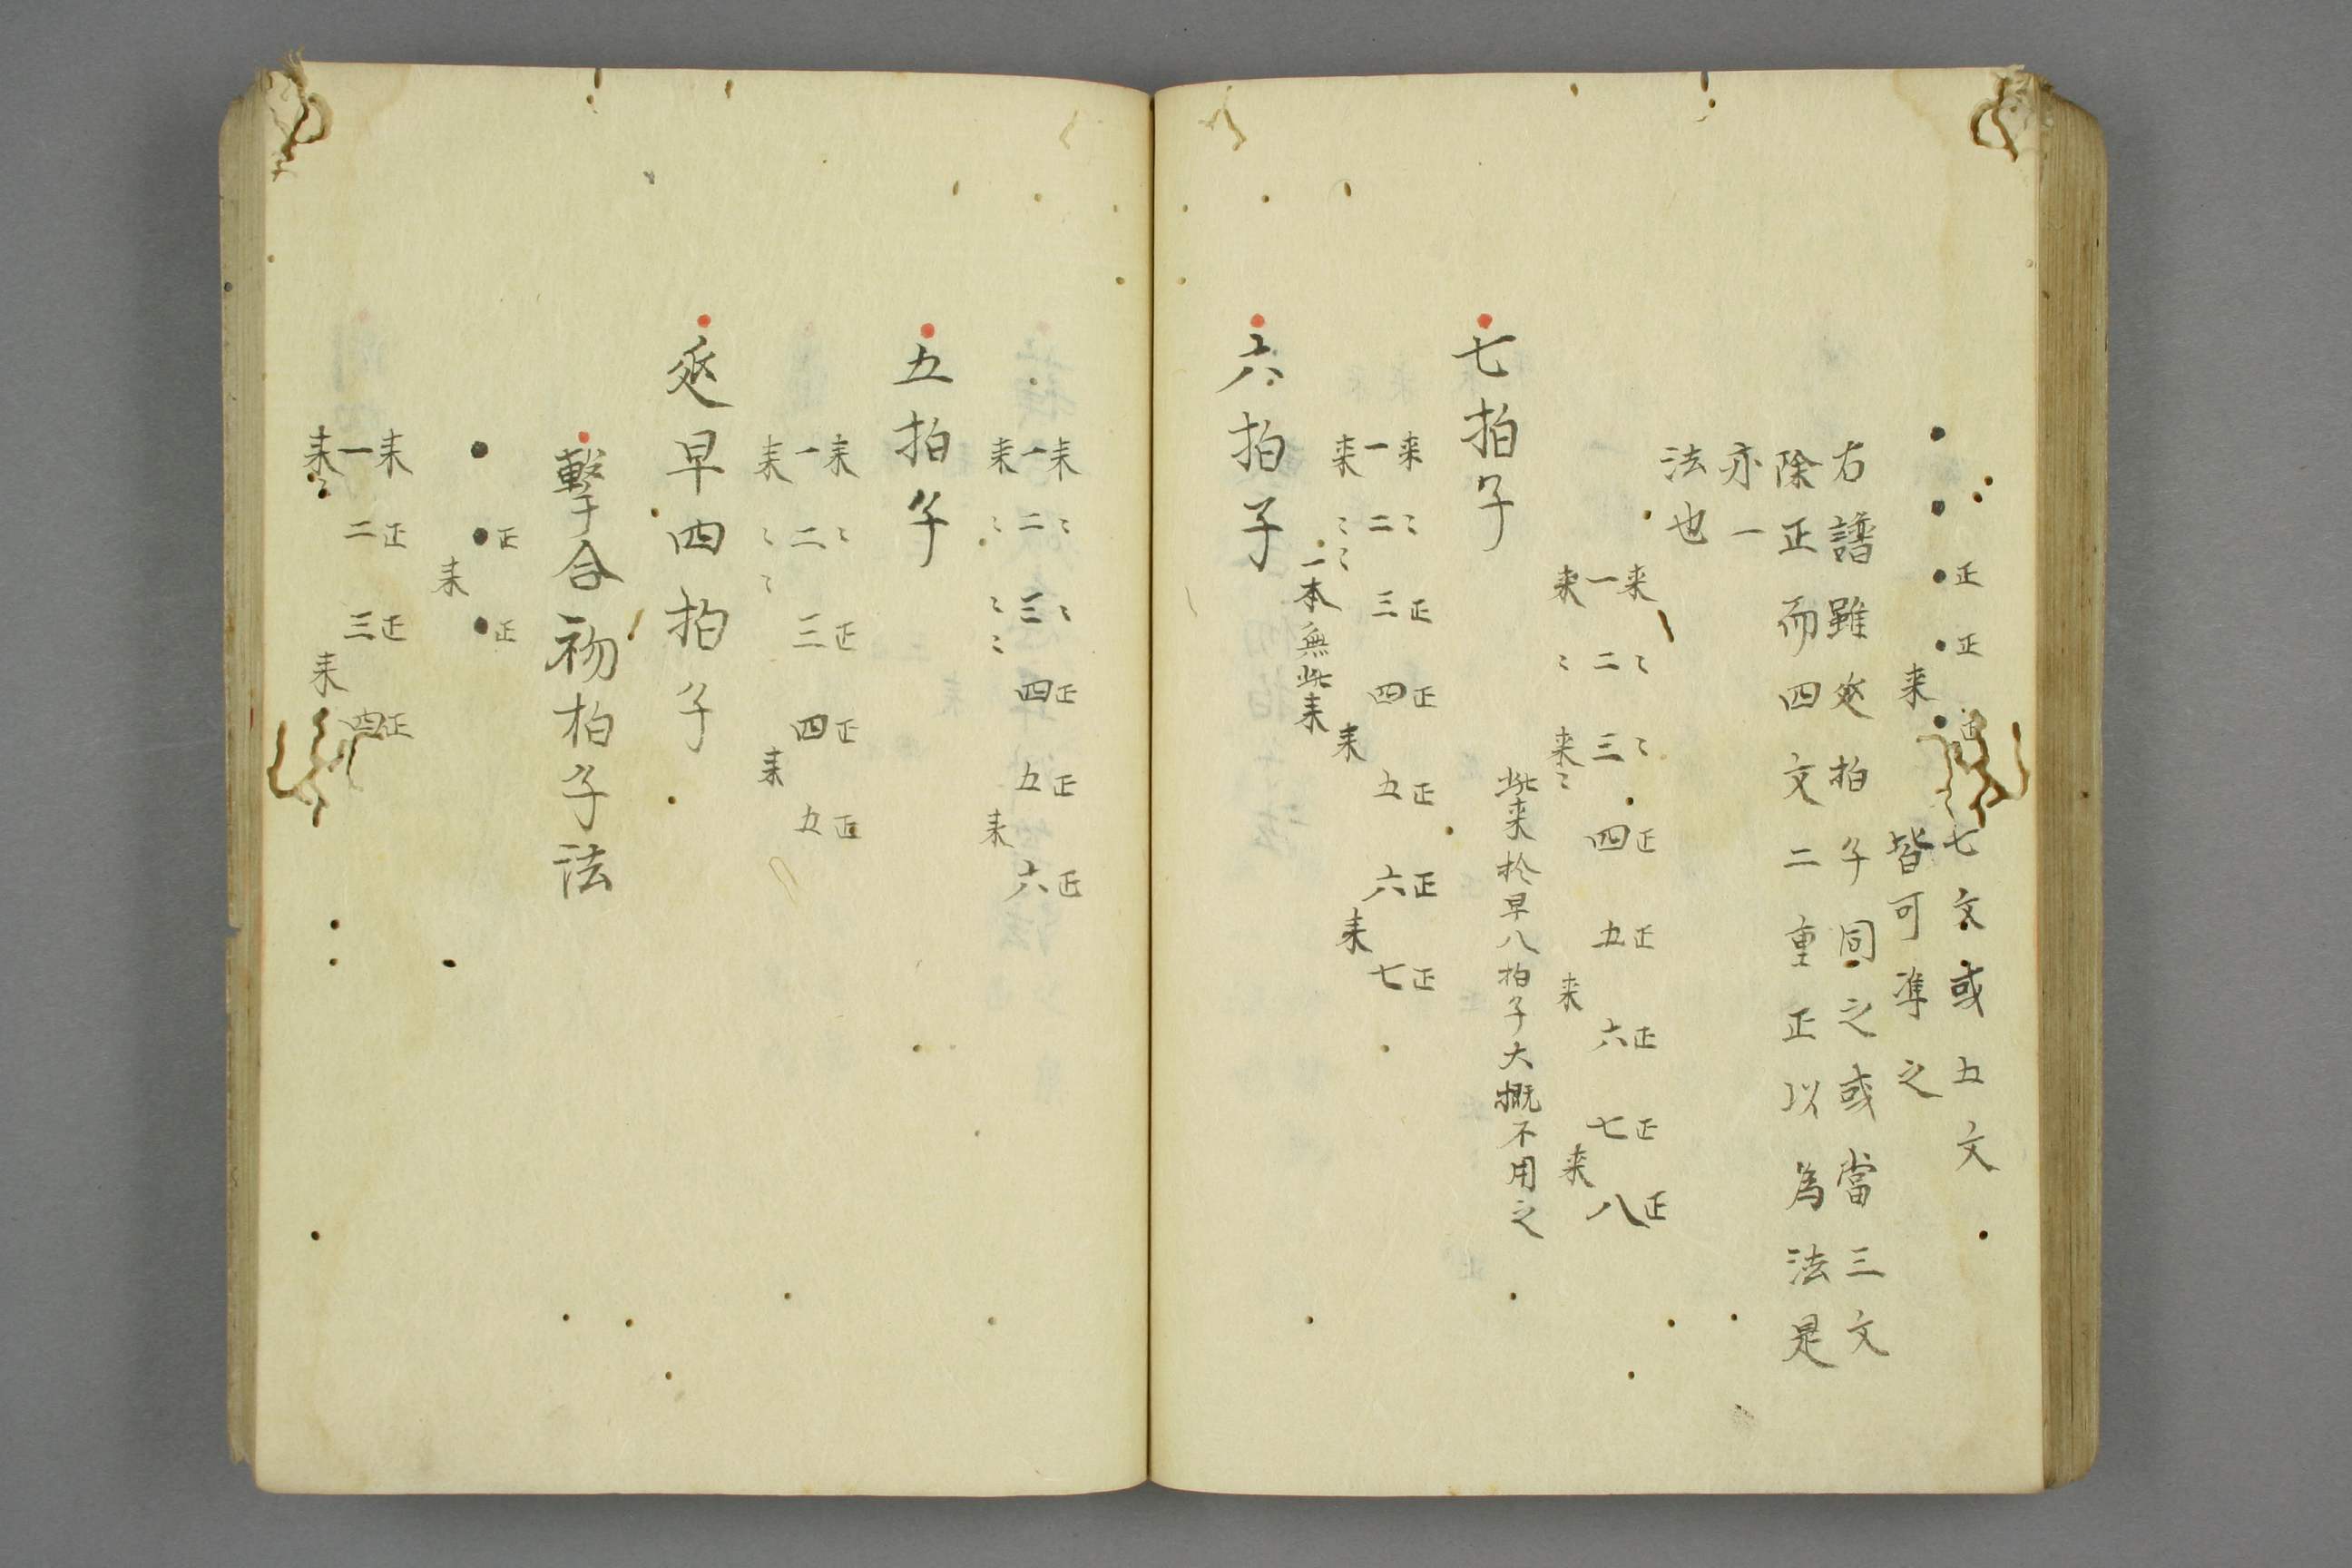 ● ● ●正 ●正 来 ●正 七文或五文
皆可準之
右譜雖延拍子同之或當三文
除正而四文二重正以為法是
亦一
法也
来 ミ ミ 正 正 正 正 正
一 二 三 四 五 六 七 八
来 ミ 来 ミ 来 来
此来於早八拍子大概不用之
七拍子
来 ミ 正 正 正 正 正
一 二 三 四 五 六 七
来 ミ ミ 来 来
一本無此来
六拍子
来 ミ ミ 正 正 正
一 二 三 四 五 六
来 ミ ミ ミ 来
五拍子
来 ミ 正 正 正
一 二 三 四 五
来 ミ ミ 来
延早四拍子
撃合初拍子法
正 正
● ● ●
来
来 正 正 正
一 二 三 四
来 ミ 来